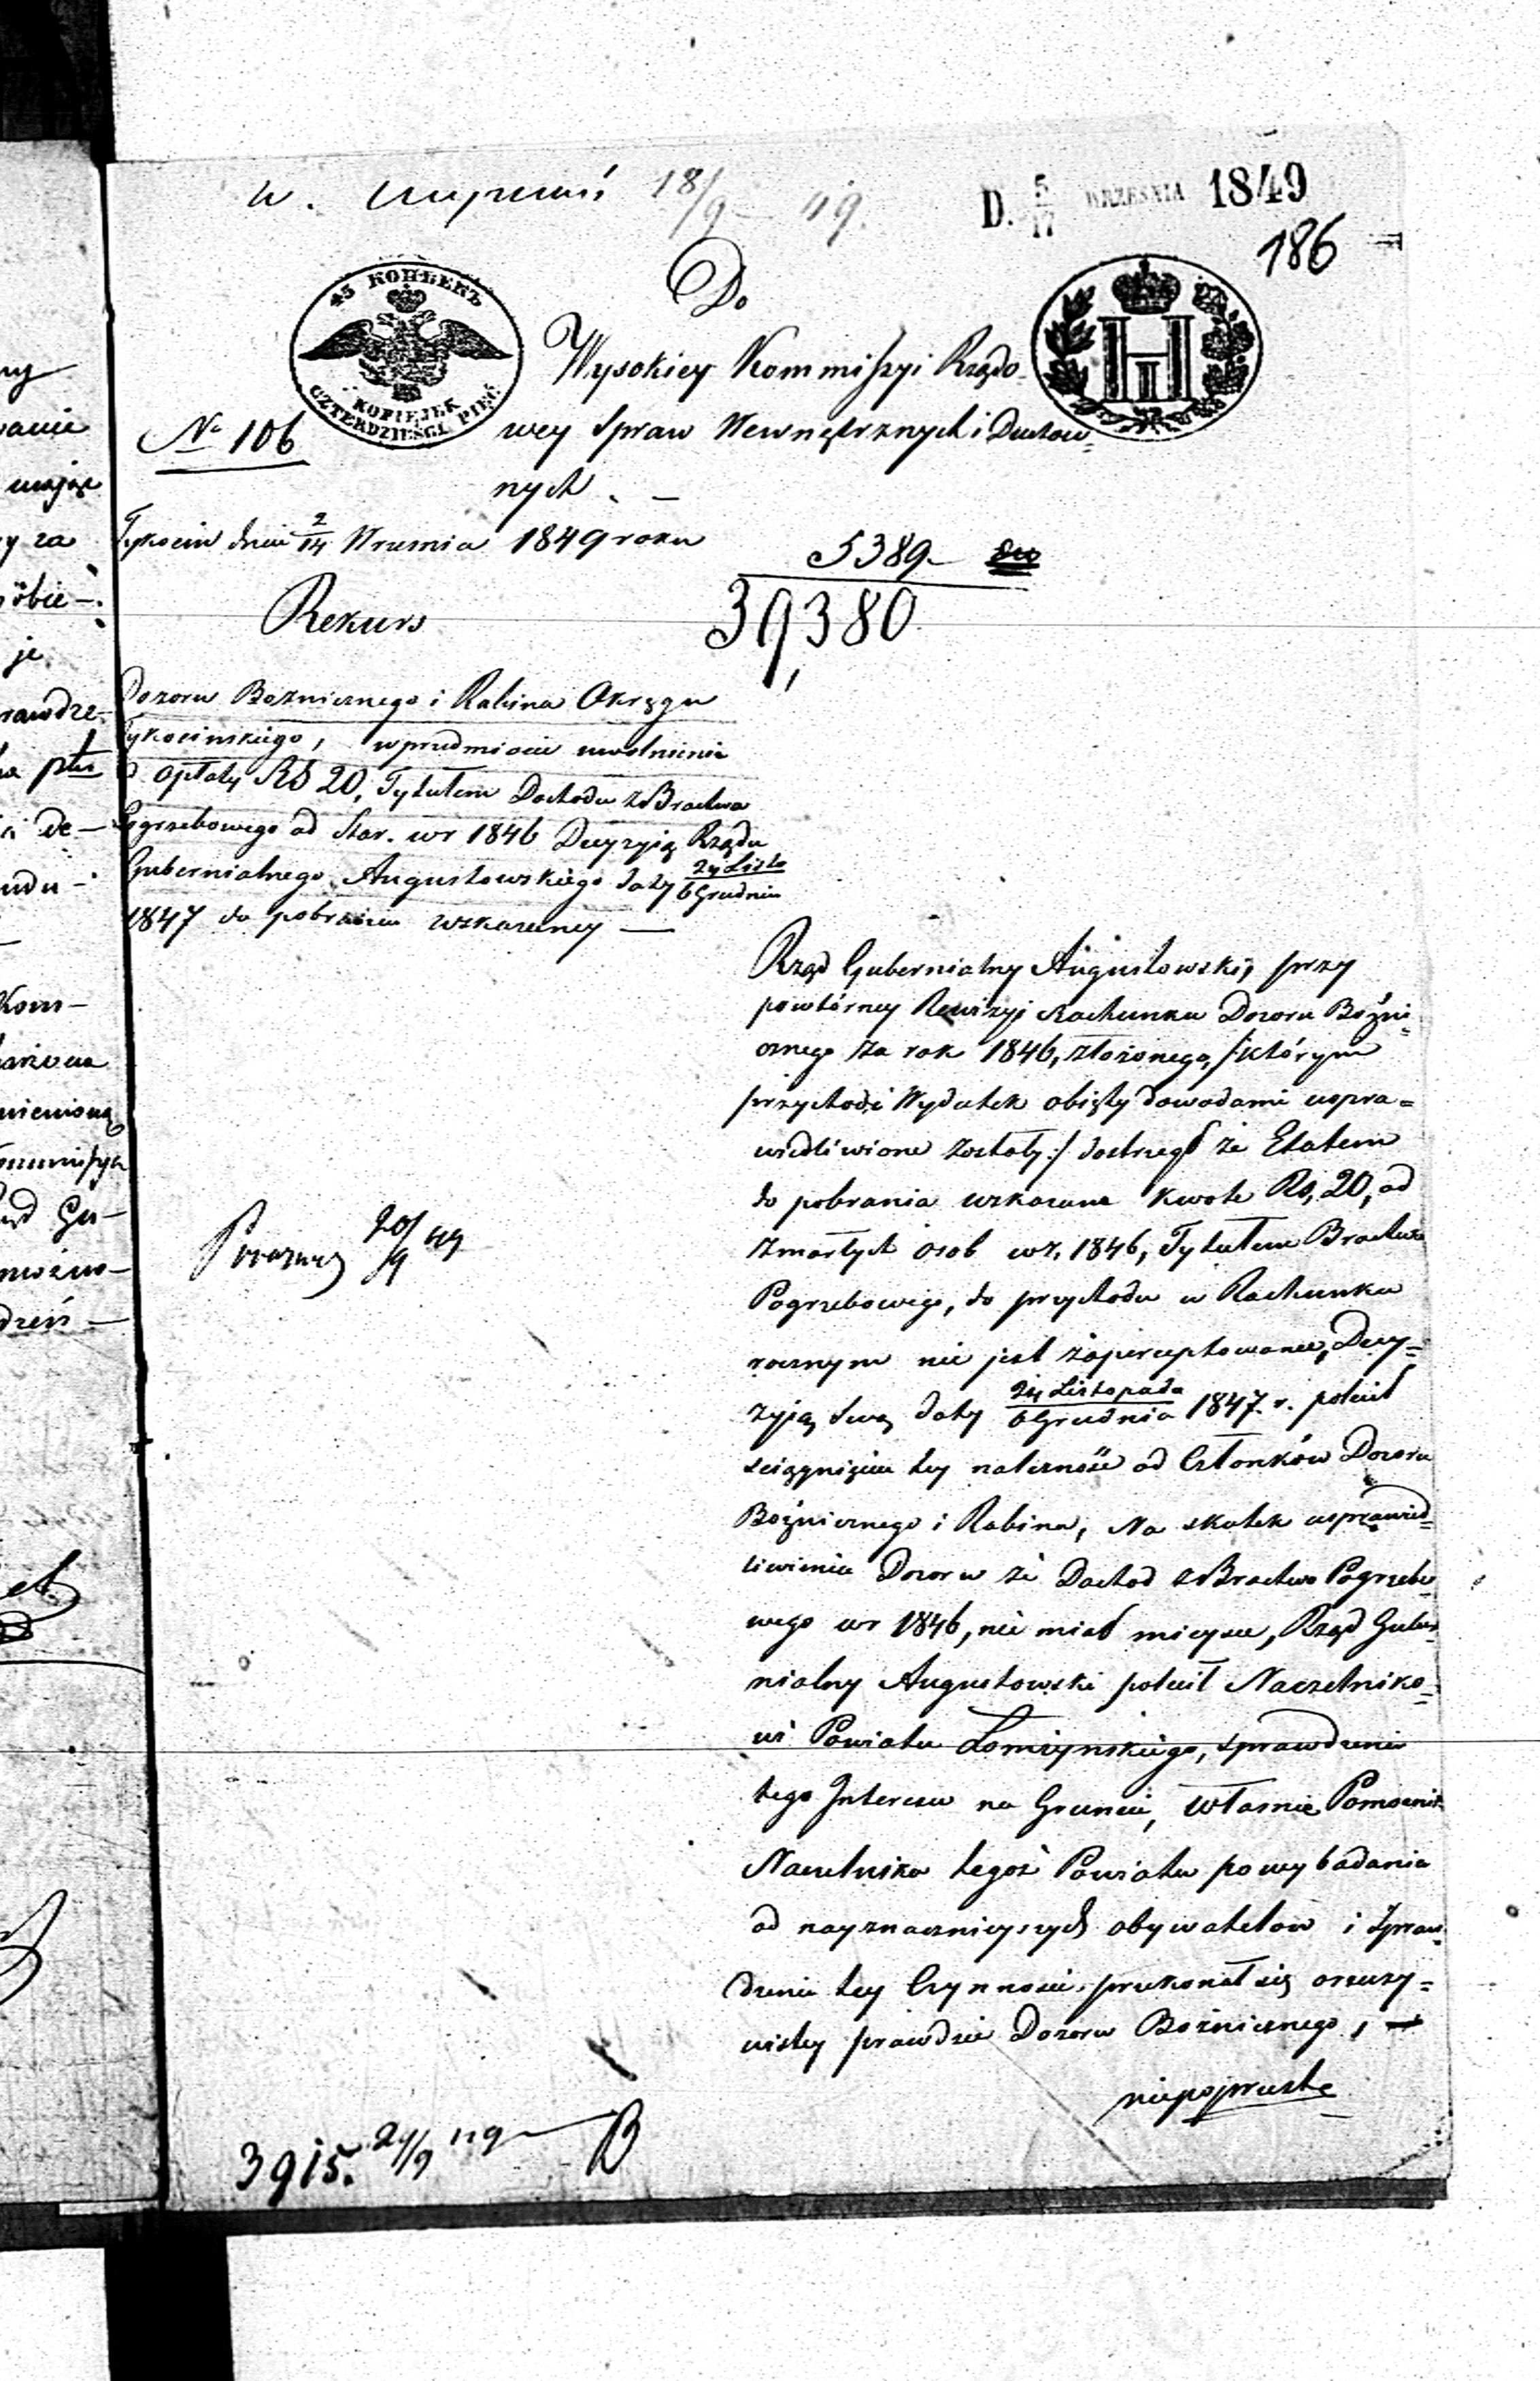 18/9 49.
D. 5/17 WRZEŚNIA 1849
186
45 КОПѢЕКЪ
KOPIEJEK
CZTERDZIEŚCI PIĘĆ
Do
Wysokiey Kommissyi Rządo-
wey Spraw Wewnętrznych i Duchow-
nych. —
No 106
Tykocin dnia 2/14 Wrzesnia 1849 roku
5389
39,380
Rekurs
Dozoru Boznicznego i Rabina Okręgu
Tykocinskiego, w przedmiocie uwolnienia
od opłaty RS 20, Tytułem Dochodu z Bractwa
Pogrzebowego od Star. w r 1846 Decyzyią Rządu
Gubernialnego Augustowskiego daty 24 Listo / 6 Grudnia
1847 do pobrania wskazaney —
Rząd Gubernialny Augustowski, przy
powtórney Rewizyi Rachunku Dozoru Bóżni-
cznego za rok 1846, złożonego, /: którym
przychod i Wydatek obięty dowodami uspra=
wiedliwione zostały :/ dostrzegł że Etatem
do pobrania wskazana kwota Rs, 20, od
zmarłych osob w r. 1846, Tytułem Bractwa
Pogrzebowego, do przychodu w Rachunku
rocznym nie jest zaperceptowana, Decy=
zyią swą daty 24 Listopada / 6 Grudnia 1847. r. polecił
sciągnięcie tey należność od Członków Dozoru
Bożnicznego i Rabina, Na skutek usprawied=
liwienia Dozoru że Dochod z Bractwa Pogrzebo-
wego w r 1846, nie miał mieysca, Rząd Guber-
nialny Augustowski polecił Naczelniko=
wi Powiatu Łomżynskiego, sprawdzenie
tego Interesu na Gruncie, własnie Pomocnik
Naczelnika tegoż Powiatu po wybadania
od nayznacznieyszych obywatelow i spraw-
dzeniu tey Czynności. przekonał się o rzeczy=
wistey prawdzie Dozoru Bożnicznego, —
niepoprzestę
20/9 49
3915. 24/9 49